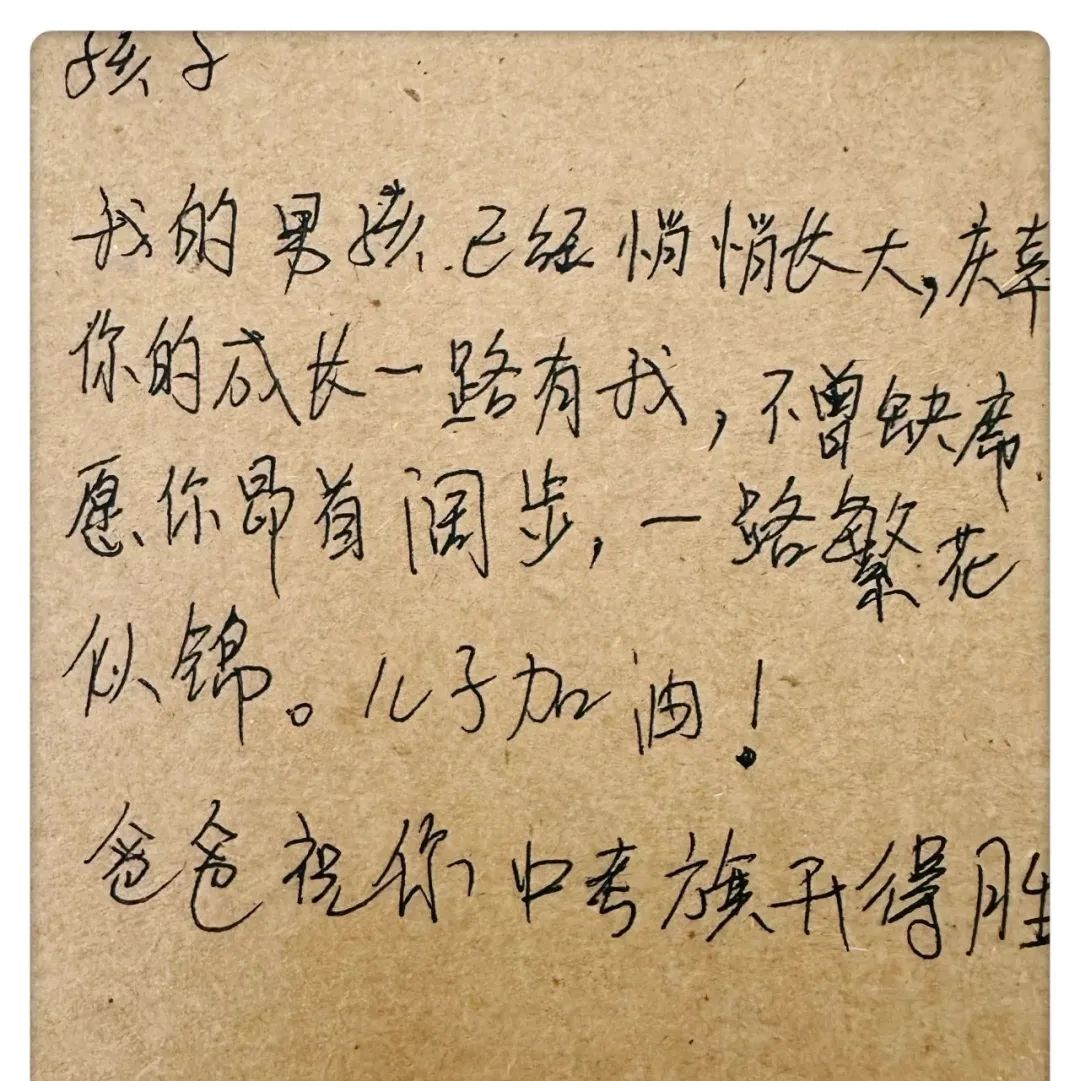 孩子
我的男孩已经悄悄长大,庆幸
你的成长一路有我,不曾缺席.
愿你昂首阔步,一路繁花
似锦。儿子加油!
爸爸祝你中考旗开得胜